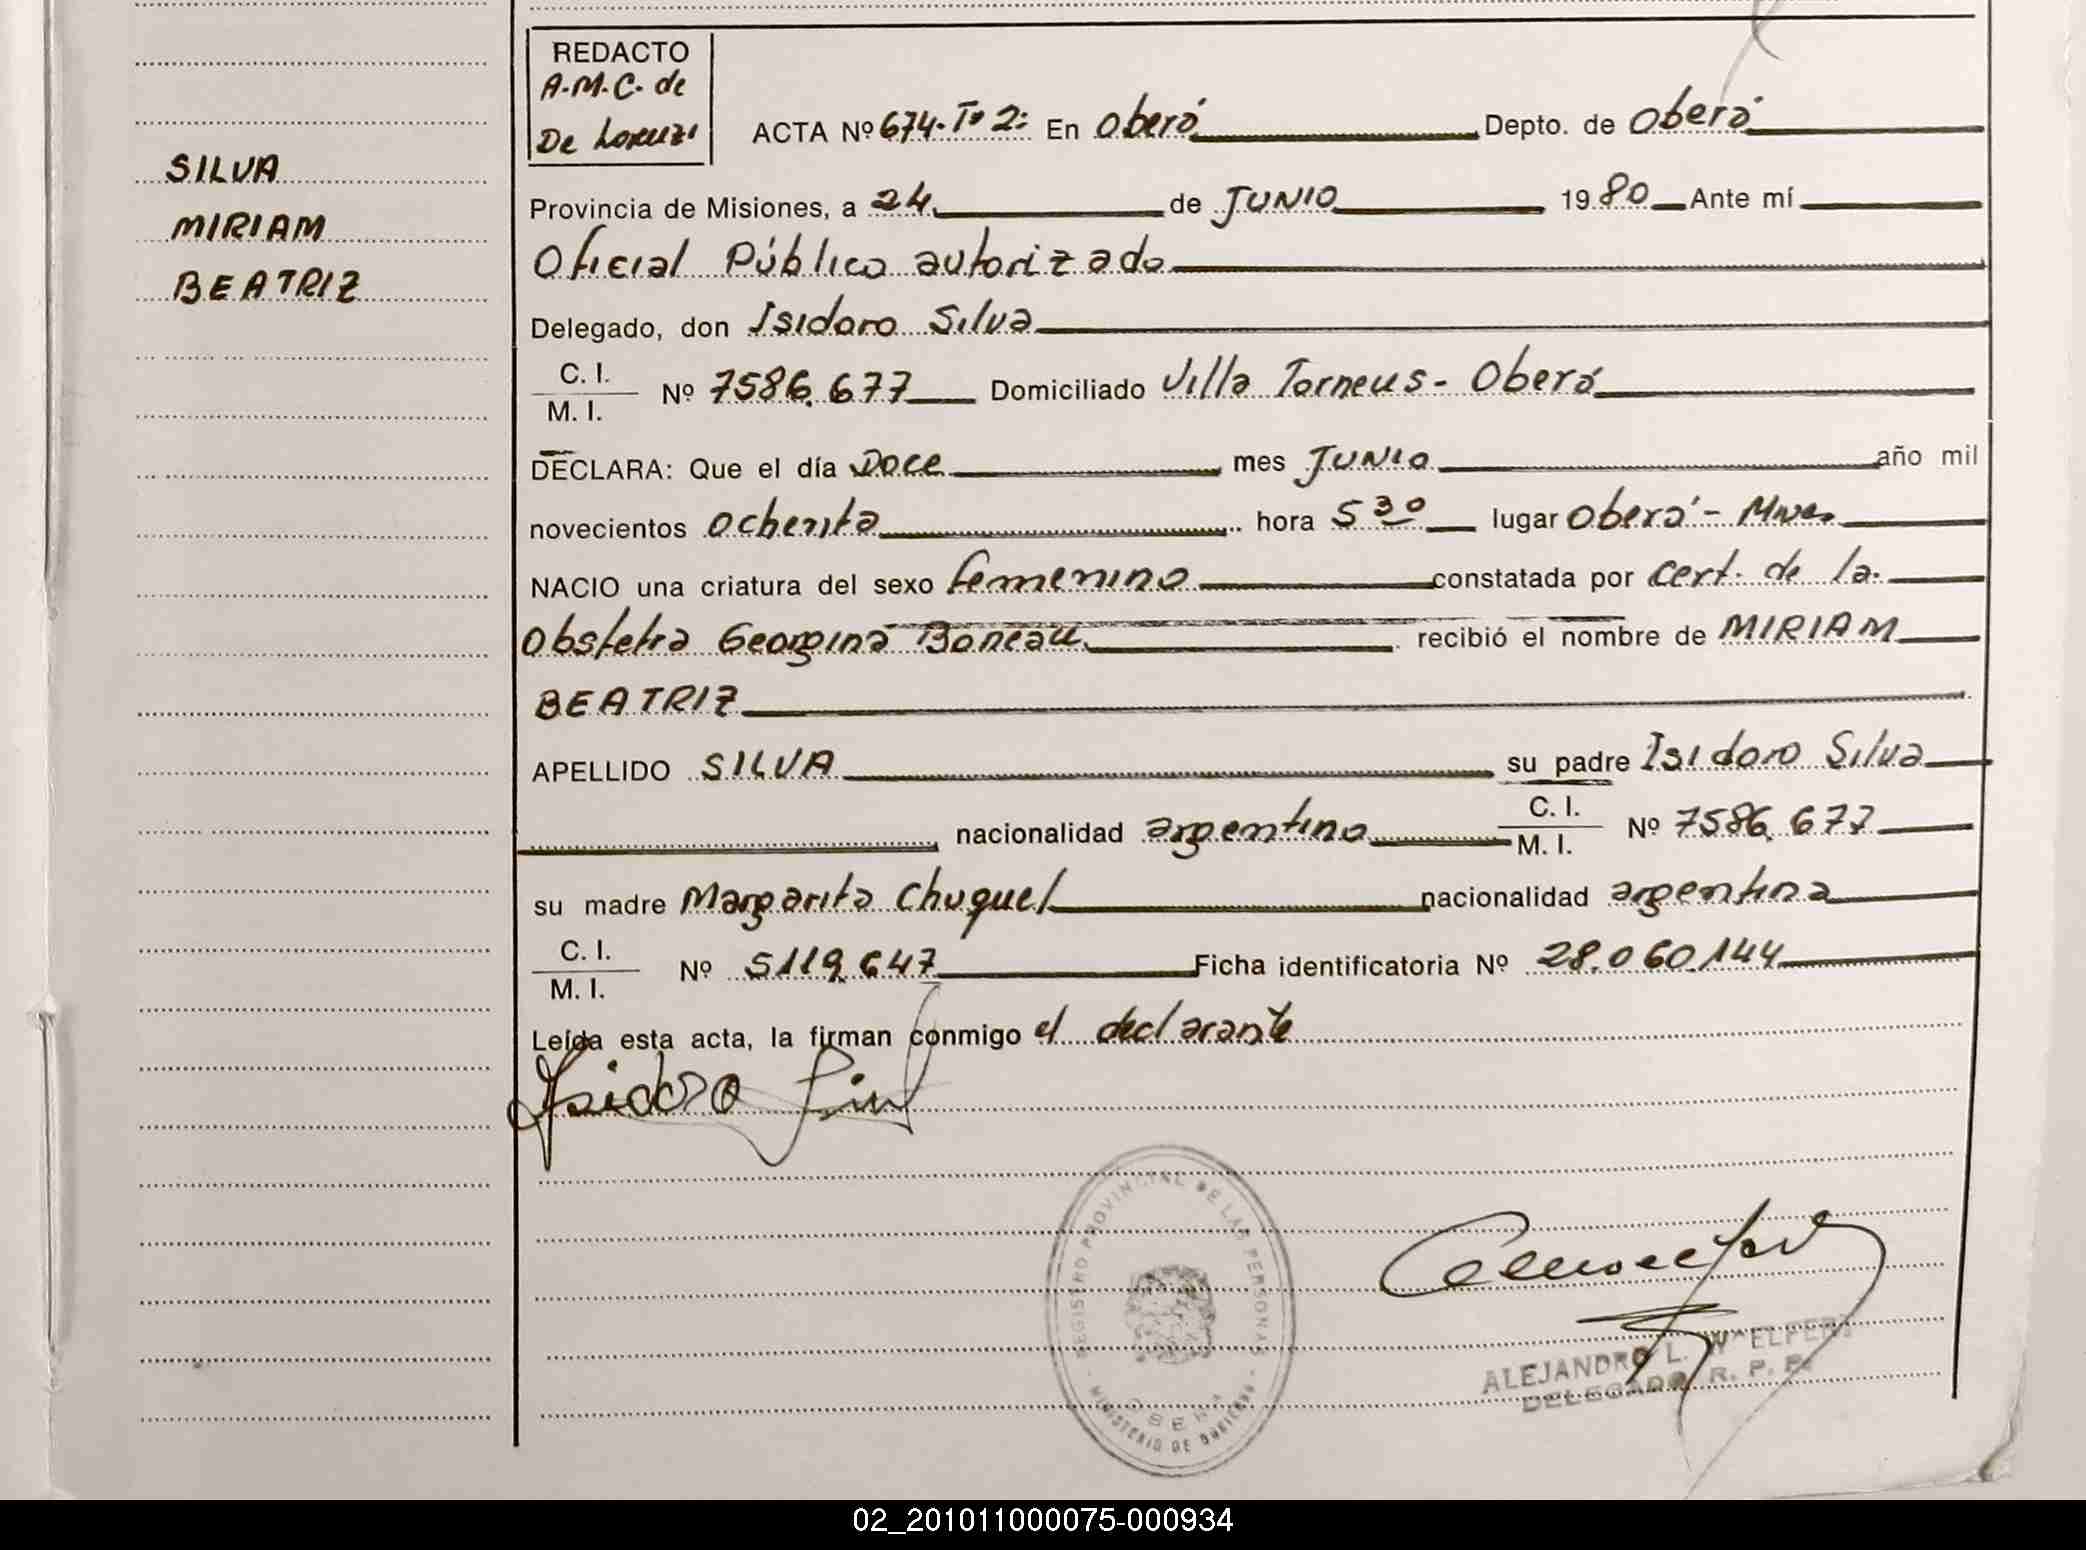 REDACTO
A.M.C. de
De Lorenzi
SILVA
MIRIAM
BEATRIZ
ACTA Nº 674-Tº 2: En Oberá Depto. de Oberá
Provincia de Misiones, a 24 de JUNIO 1980 Ante mí
Oficial Público autorizado
Delegado, don Isidoro Silva
C. I.
M. I. Nº 7586.677 Domiciliado Villa Torneus - Oberá
DECLARA: Que el día Doce mes JUNIO año mil
novecientos ochenta hora 5 30 lugar Oberá - Mnes.
NACIO una criatura del sexo femenino constatada por cert. de la
Obstetra Georgina Boneau recibió el nombre de MIRIAM
BEATRIZ
APELLIDO SILVA su padre Isidoro Silva
nacionalidad argentino C. I.
M. I. Nº 7586.677
su madre Margarita Chuquel nacionalidad argentina
C. I.
M. I. Nº 5119.647 Ficha identificatoria Nº 28.060.144
Leída esta acta, la firman conmigo el declarante
Isidoro Silva
REGISTRO PROVINCIAL DE LAS PERSONAS
OBERA
- MINISTERIO DE GOBIERNO -
ALEJANDRO L.
DELEGADO R. P. P.
02_201011000075-000934